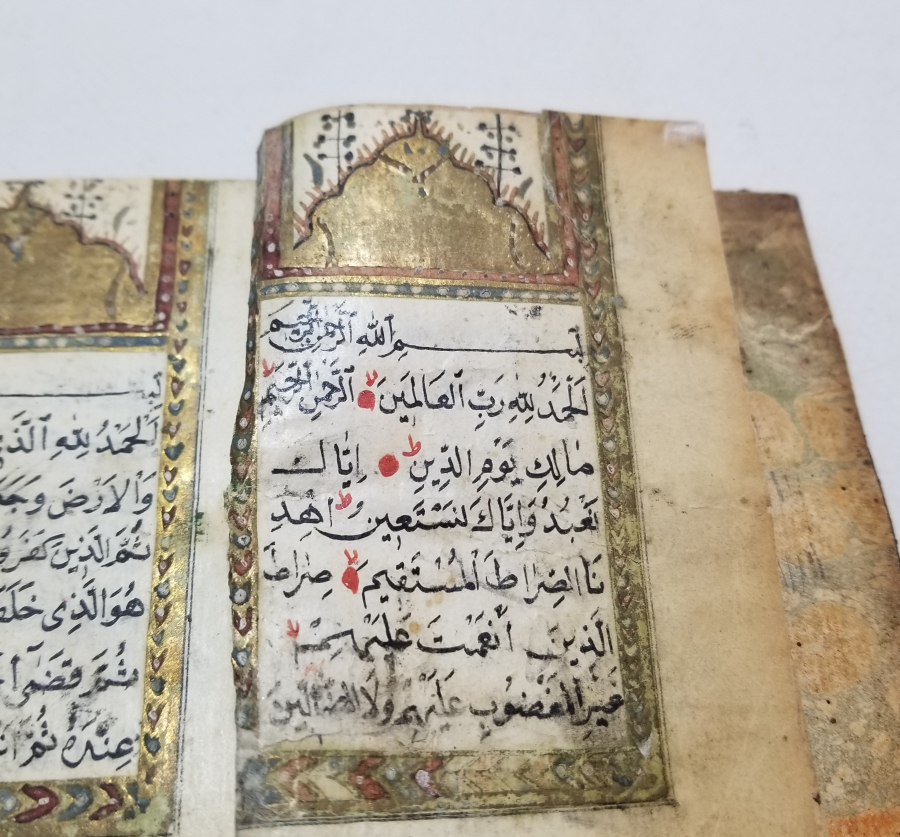 بسم الله الرحمن الرحيم
اَلْحَمْدُ لِلّٰهِ رَبِّ الْعَالَمِينَ الرَّحْمٰنِ الرَّحِيمِ
مَالِكِ يَوْمِ الدِّينِ اِيَّاكَ
نَعْبُدُ وَاِيَّاكَ نَسْتَعِينُ اِهْدِ
نَا الصِّرَاطَ الْمُسْتَقِيمَ صِرَاطَ
الَّذِينَ اَنْعَمْتَ عَلَيْهِمْ
غَيْرِ الْمَغْضُوبِ عَلَيْهِمْ وَلَا الضَّالِّينَ
اَلْحَمْدُ لِلّٰهِ الَّذِي
وَالْاَرْضَ وَجَعَ
ثُمَّ الَّذِينَ كَفَرُو
هُوَ الَّذِي خَلَقَ
ثُمَّ قَضٰى
عِنْدَهُ ثُمَّ